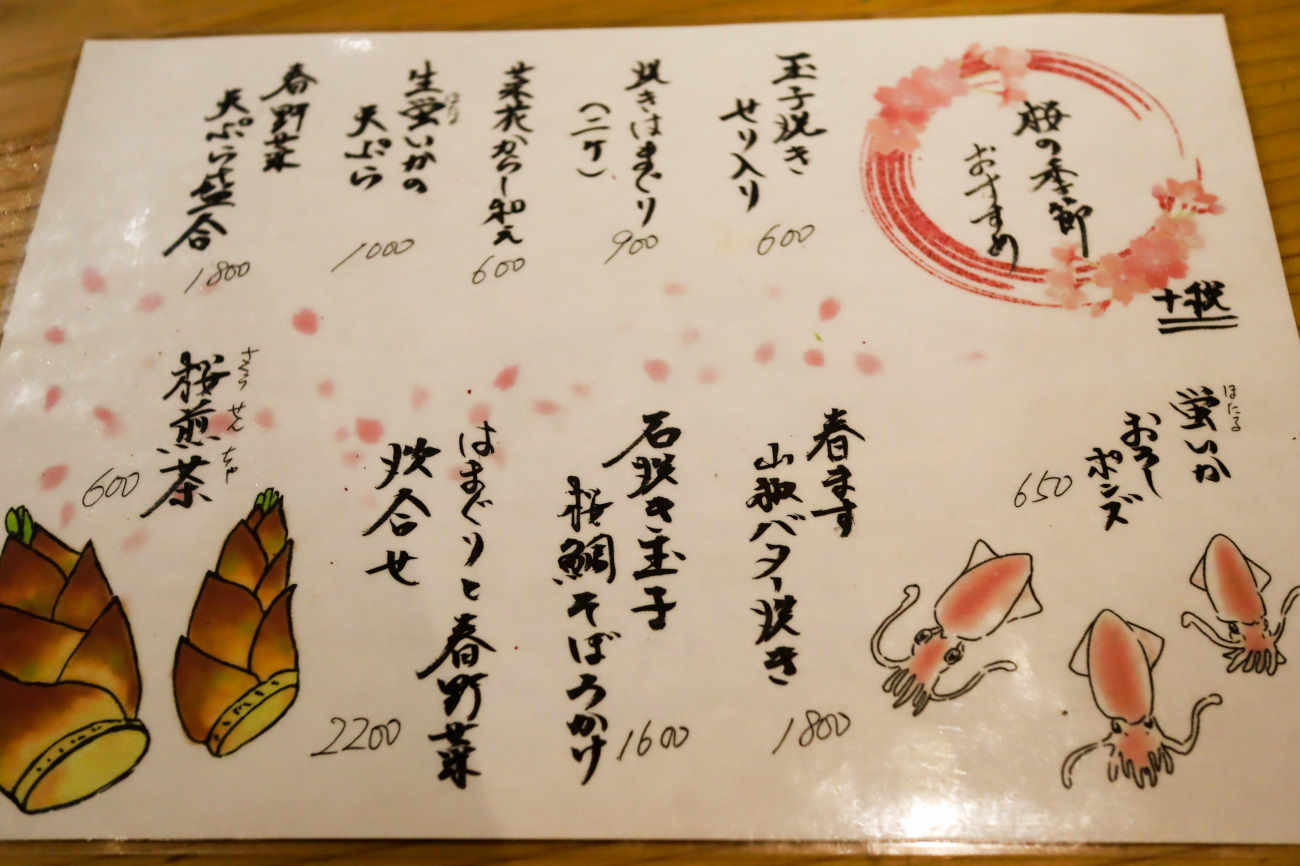 桜の季節
おすすめ
十税
玉子焼き
せり入り
600
焼きはまぐり
(二ケ)
900
菜花からし和え
600
生蛍いかの
ほたる
天ぷら
1000
春野菜
天ぷら盛合
1800
蛍いか
ほたる
おろし
ポンズ
650
春ます
山椒バター焼き
1800
石焼き玉子
桜鯛そぼろかけ
1600
はまぐりと春野菜
炊合せ
2200
桜煎茶
さくら せん ちゃ
600